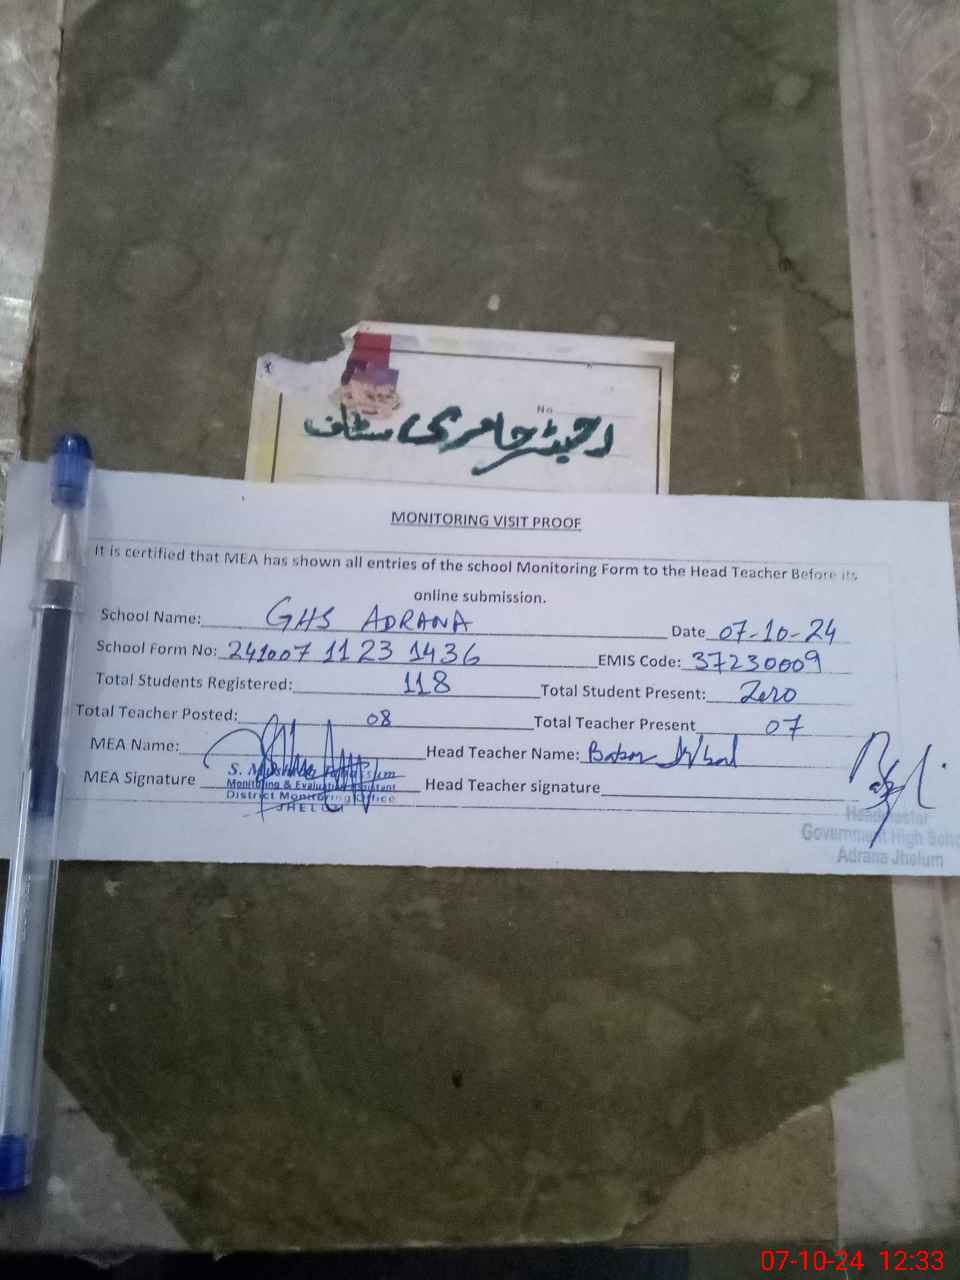 No
رجسٹر حاضری سٹاف
MONITORING VISIT PROOF
It is certified that MEA has shown all entries of the school Monitoring Form to the Head Teacher Before its
online submission.
School Name: GHS ADRANA Date 07-10-24
School Form No: 241007 11 23 1436 EMIS Code: 37230009
Total Students Registered: 118 Total Student Present: Zero
Total Teacher Posted: 08 Total Teacher Present 07
MEA Name: Head Teacher Name: Babar Iqbal
MEA Signature Head Teacher signature
Monitoring & Evaluation Assistant
District Monitoring Office
JHELUM
Headmaster
Government High Scho
Adrana Jhelum
07-10-24 12:33